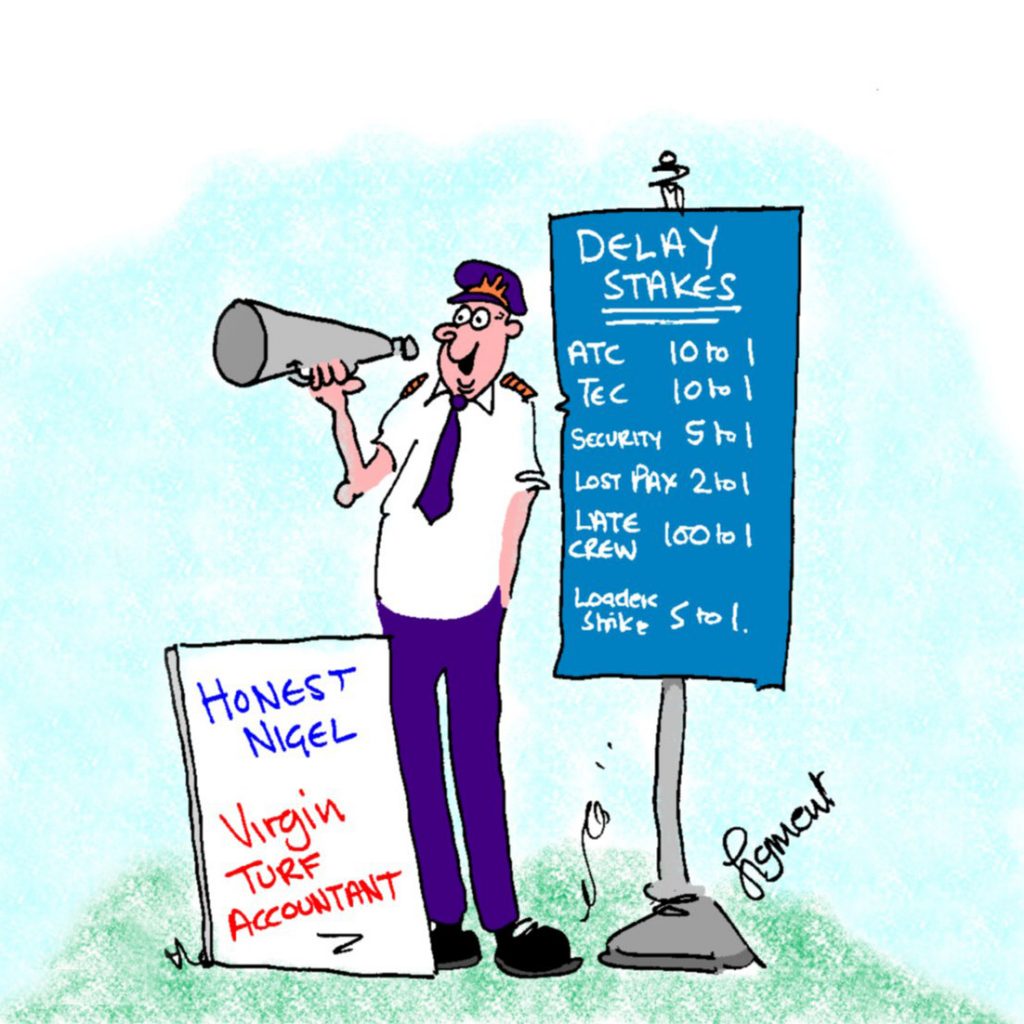 DELAY
STAKES
ATC 10 to 1
TEC 10 to 1
SECURITY 5 to 1
LOST PAX 2 to 1
LATE
CREW 100 to 1
Loaders
Strike 5 to 1.
HONEST
NIGEL
Virgin
TURF
ACCOUNTANT
Figment